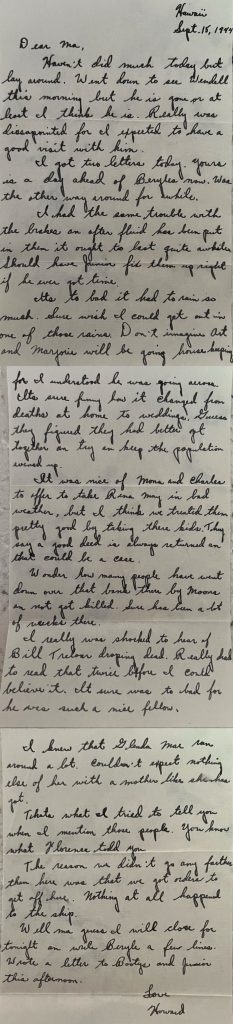 Hawaii
Sept. 15, 1944
Dear Ma,
Haven't did much today but
lay around. Went down to see Wendell
this morning but he is gone or at
least I think he is. Really was
dissapointed for I expected to have a
good visit with him.
I got two letters today. yours
is a day ahead of Beryles now. Was
the other way around for awhile.
I had the same trouble with
the brakes an after fluid has been put
in them it ought to last quite awhile
Should have Junior fix them up right
if he ever got time.
Its to bad it had to rain so
much. Sure wish I could get out in
one of those rains. Don't imagine Art
and Marjorie will be going house keeping
for I understood he was going across.
Its sure funny how it changed from
deaths at home to weddings. Guess
they figured they had better get
together an try an keep the population
evened up.
It was nice of Mona and Charles
to offer to take Rena may in bad
weather, but I think we treated them
pretty good by taking there kids. They
say a good deed is always returned an
that could be a case.
Wonder how many people have went
down over that bank there by Moons
an not got killed. Sure has been a lot
of wrecks there.
I really was shocked to hear of
Bill Trevar droping dead. Really had
to read that twice before I could
believe it. It sure was to bad for
he was such a nice fellow.
I knew that Glenda Mae ran
around a lot. Couldn't expect nothing
else of her with a mother like she has
got.
Thats what I tried to tell you
when I mention those people. You know
what Florence told you
The reason we didn't go any farther
then here was that we got orders to
get off here. Nothing at all happend
to the ship.
Well ma guess I will close for
tonight an write Beryle a few lines.
Wrote a letter to Bootys and Junior
this afternoon.
Love
Howard